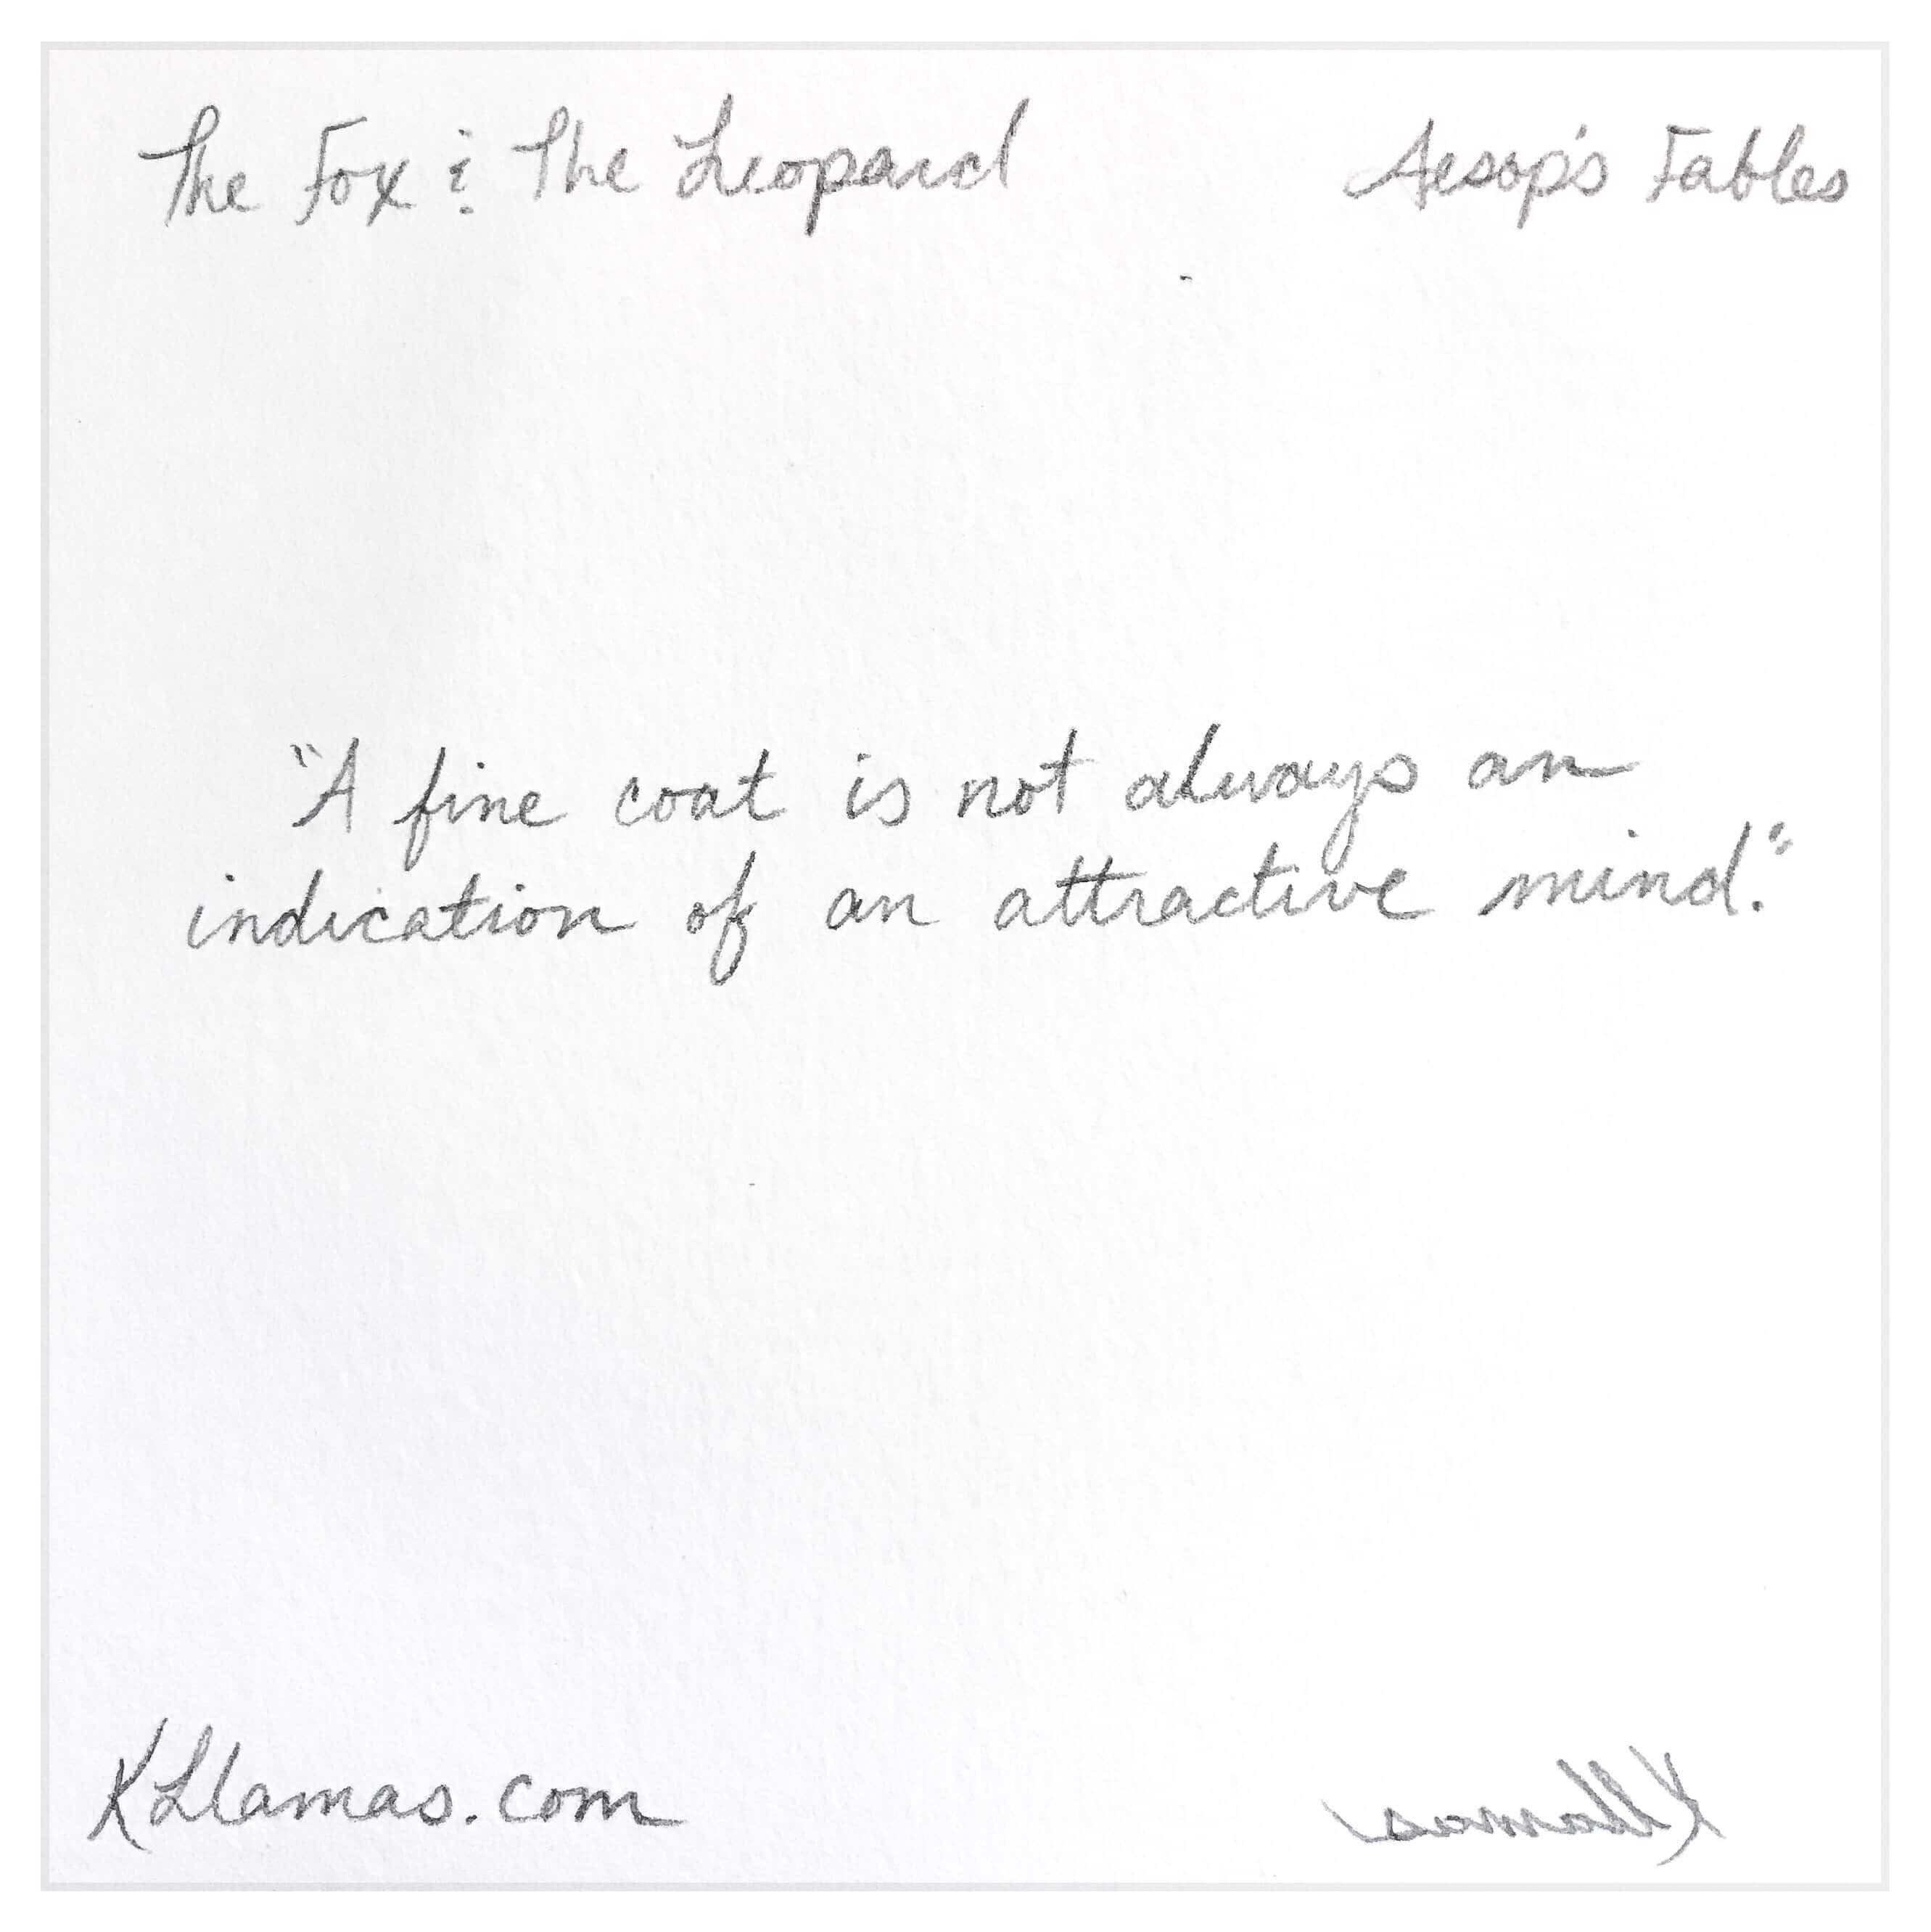 The Fox & The Leopard
Aesop's Fables
"A fine coat is not always an
indication of an attractive mind."
KLlamas.com
KLlamas